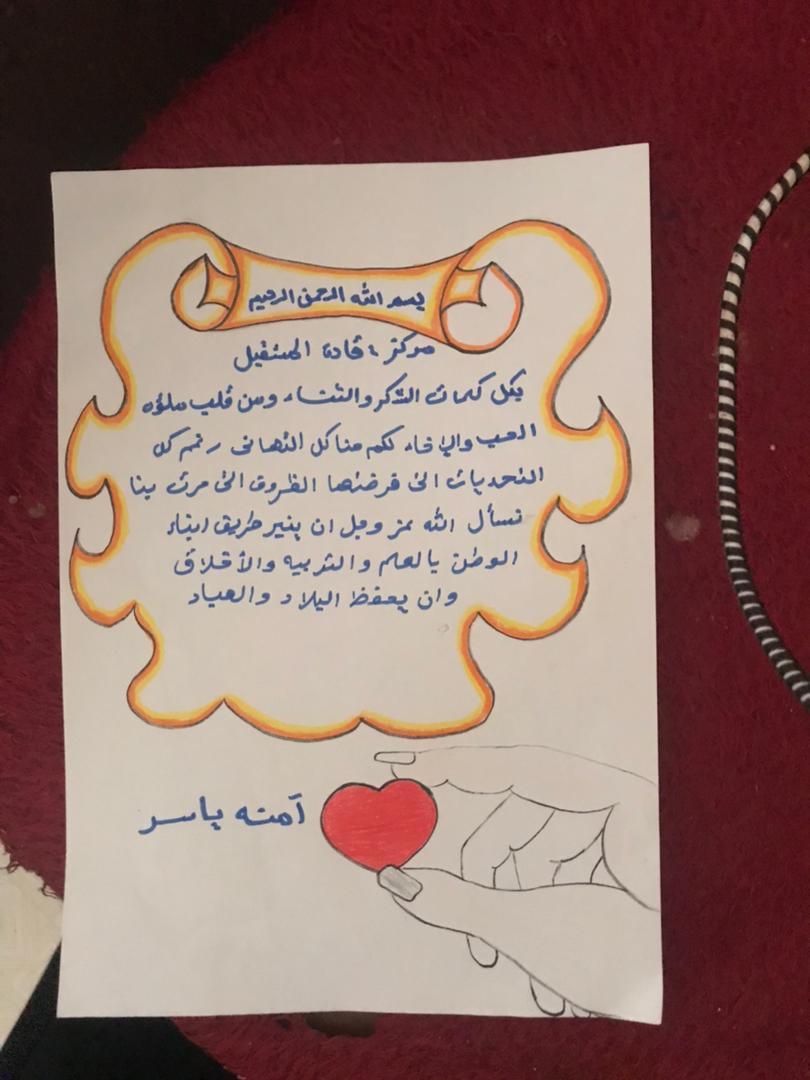 بسم الله الرحمن الرحيم
مركز قادة المستقبل
بكل كلمات الشكر والثناء ومن قلب ملؤه
الحب والإخاء لكم منا كل التهاني رغم كل
التحديات التي فرضتها الظروف التي مرت بنا
نسأل الله عز وجل ان ينير طريق ابناء
الوطن بالعلم والتربيه والأخلاق
وان يحفظ البلاد والعباد
آمنه ياسر